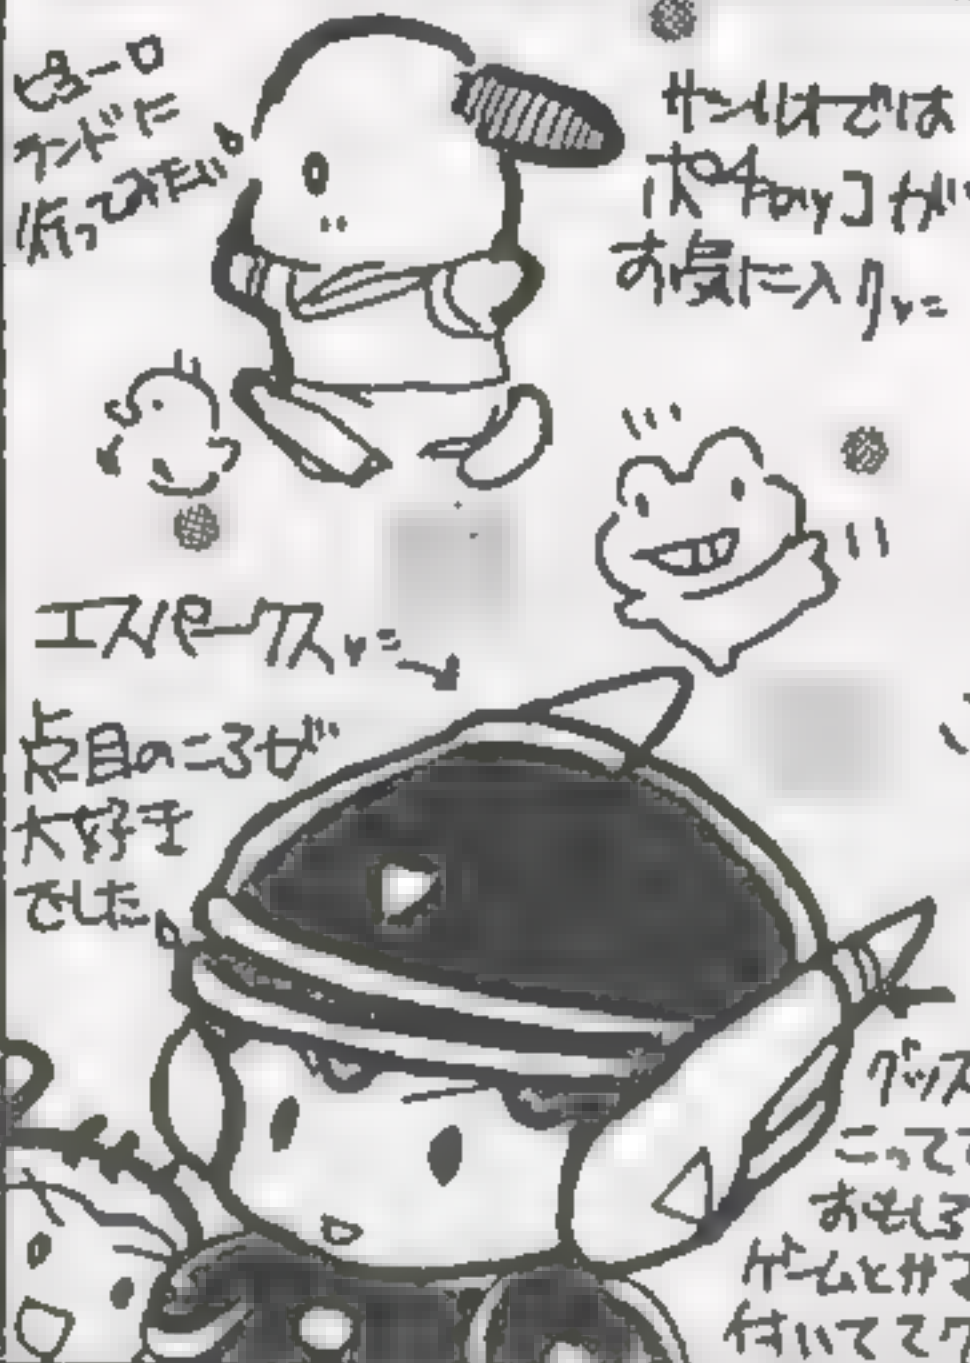 ピューロ
ランドに
行ってみたい
サンリオでは
ポチャッコが
お気に入りv=
エスパークスv=→
点目のころが
大好き
でした。
グッズ
こってて
おもしろ
ゲームとか
付いてて